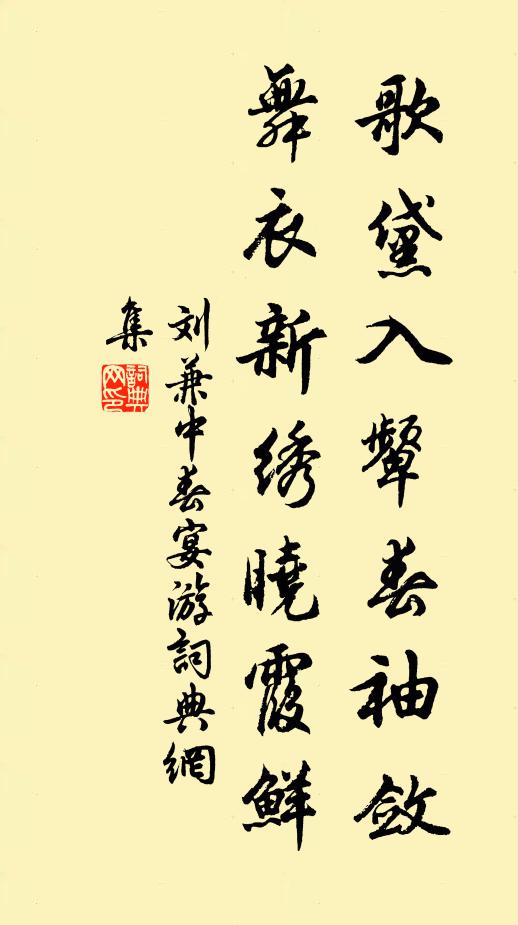 歌黛入颦春袖敛
舞衣新绣晓霞鲜
刘兼中春宴游詞典網
集
詞典网印